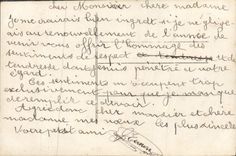 cher Monsieur chère madame
je me aurais bien ingrat si je ne
au renouvellement de l'année de
venir vous offrir l'hommage des
sentiments de respect et de
tendresse dont je suis pénétré a votre
égard.
Ces sentiments m'occupent trop
exclusivement pour que je manque
de remplir ce devoir.
Agréez donc cher monsieur et chère
madame mes vœux les plus sincères
Votre petit ami